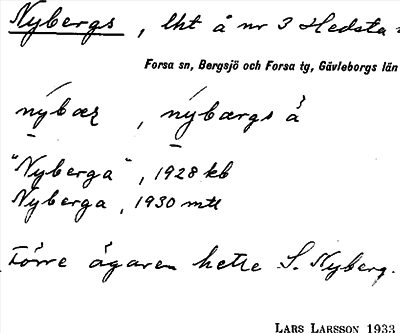 Nybergs, lht å nr 3 Hedsta
Forsa sn, Bergsjö och Forsa tg, Gävleborgs län
nýbær, nýbærgs å
"Nyberga", 1928 kb
Nyberga, 1930 mtl
Förre ägaren hette S. Nyberg.
LARS LARSSON 1933